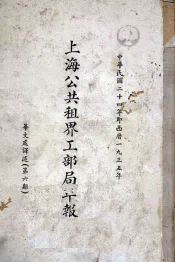 中華民國二十四年即西曆一九三五年
上海公共租界工部局年報
華文處譯述(第六期)